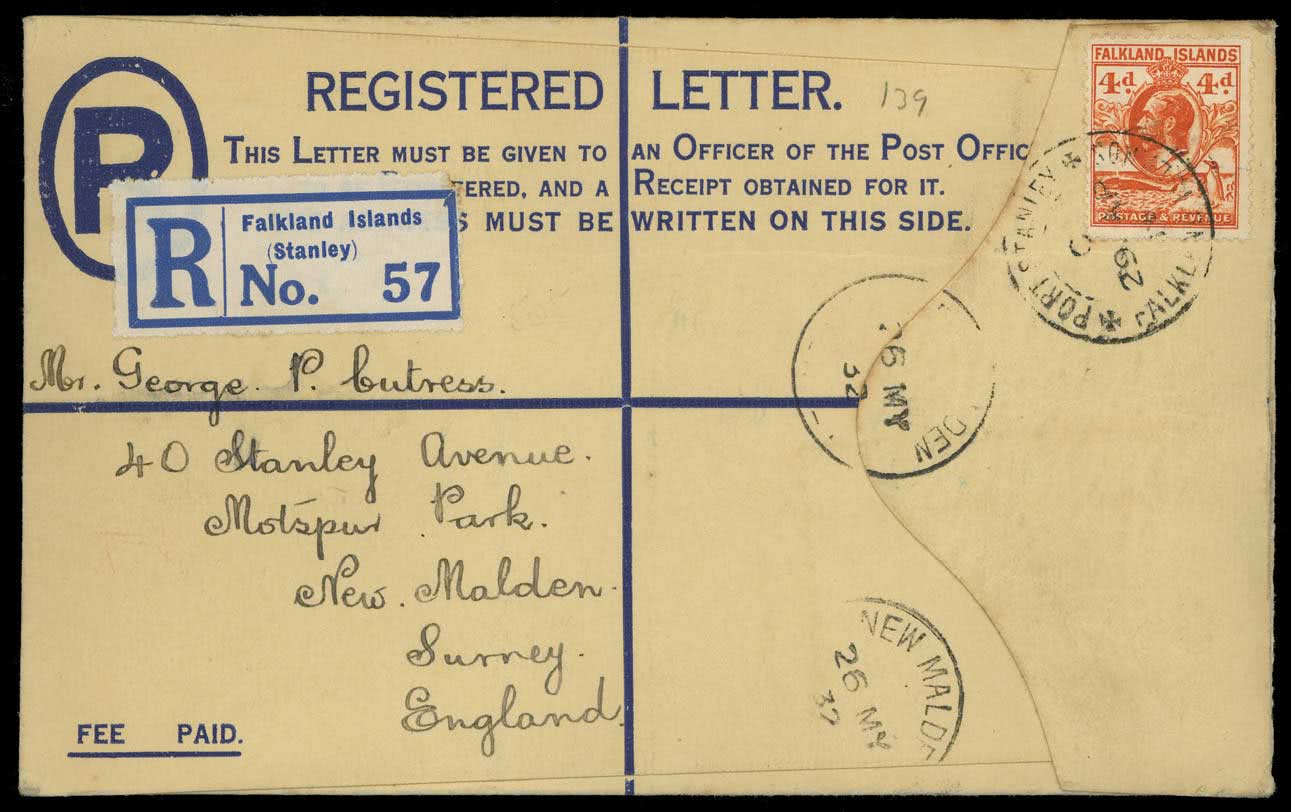 P
REGISTERED LETTER.
139
THIS LETTER MUST BE GIVEN TO AN OFFICER OF THE POST OFFIC
AND A RECEIPT OBTAINED FOR IT.
MUST BE WRITTEN ON THIS SIDE.
R
Falkland Islands
(Stanley)
No. 57
FALKLAND ISLANDS
4d. 4d.
POSTAGE & REVENUE
PORT STANLEY
FALKL
26 MY
32
DEN
Mr. George. P. Cutress.
40 Stanley Avenue.
Motspur Park.
New. Malden.
Surrey.
England.
NEW MALDE
26 MY
32
FEE PAID.